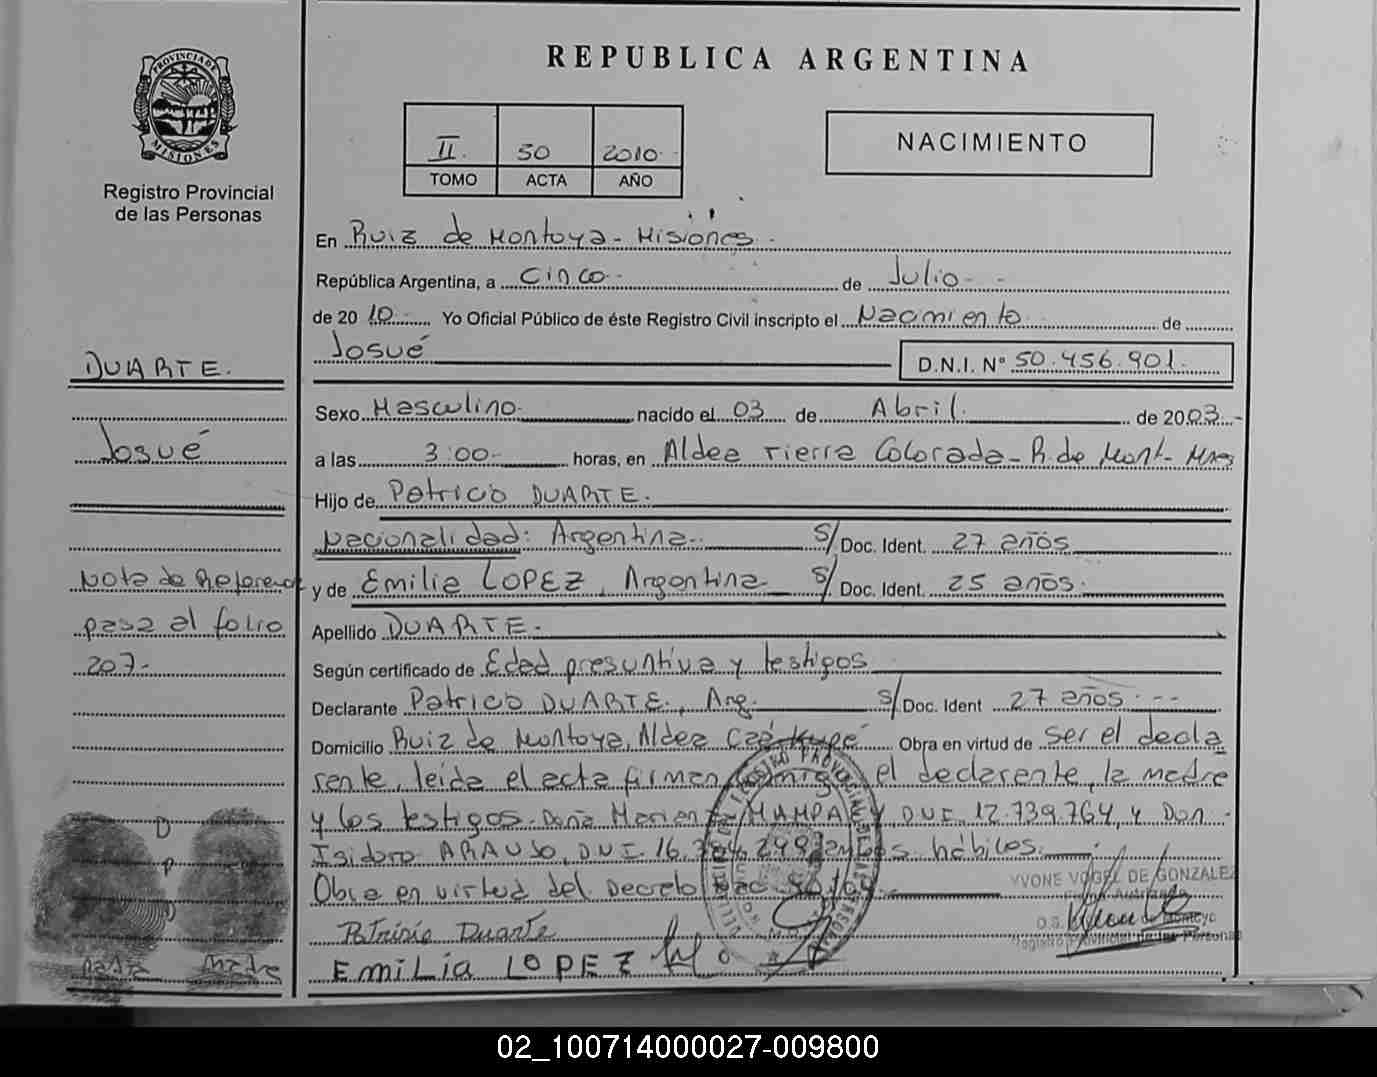 REPUBLICA ARGENTINA
PROVINCIA DE MISIONES
Registro Provincial
de las Personas
II. 50 2010
TOMO ACTA AÑO
NACIMIENTO
En Ruiz de Montoya - Misiones.
República Argentina, a Cinco de Julio
de 20 10 Yo Oficial Público de éste Registro Civil inscripto el Nacimiento de
Josué D.N.I. N° 50.456.901.
Sexo Masculino nacido el 03 de Abril de 2003
a las 3:00 horas, en Aldea Tierra Colorada - R. de Mont - Mnes
Hijo de Patricio DUARTE.
Nacionalidad: Argentina S/ Doc. Ident. 27 años
y de Emilia LOPEZ, Argentina S/ Doc. Ident. 25 años.
Apellido DUARTE.
Según certificado de Edad presuntiva y testigos
Declarante Patricio DUARTE, Arg. S/ Doc. Ident 27 años
Domicilio Ruiz de Montoya, Aldea Obra en virtud de ser el decla
rente, leída el acta firman el declarente, la madre
y los testigos Doña 12.739.764, y Don
Isidoro ARAUJO, D.N.I. 16. hábiles.
Obra en virtud del Decreto
YVONE VOGEL DE GONZALEZ
Registro Provincial de las Personas
Patricio Duarte
EMILIA LOPEZ
DUARTE.
Josué
Nota de Referencia
pasa al folio
207-
D
P
D
Padre Madre
02_100714000027-009800